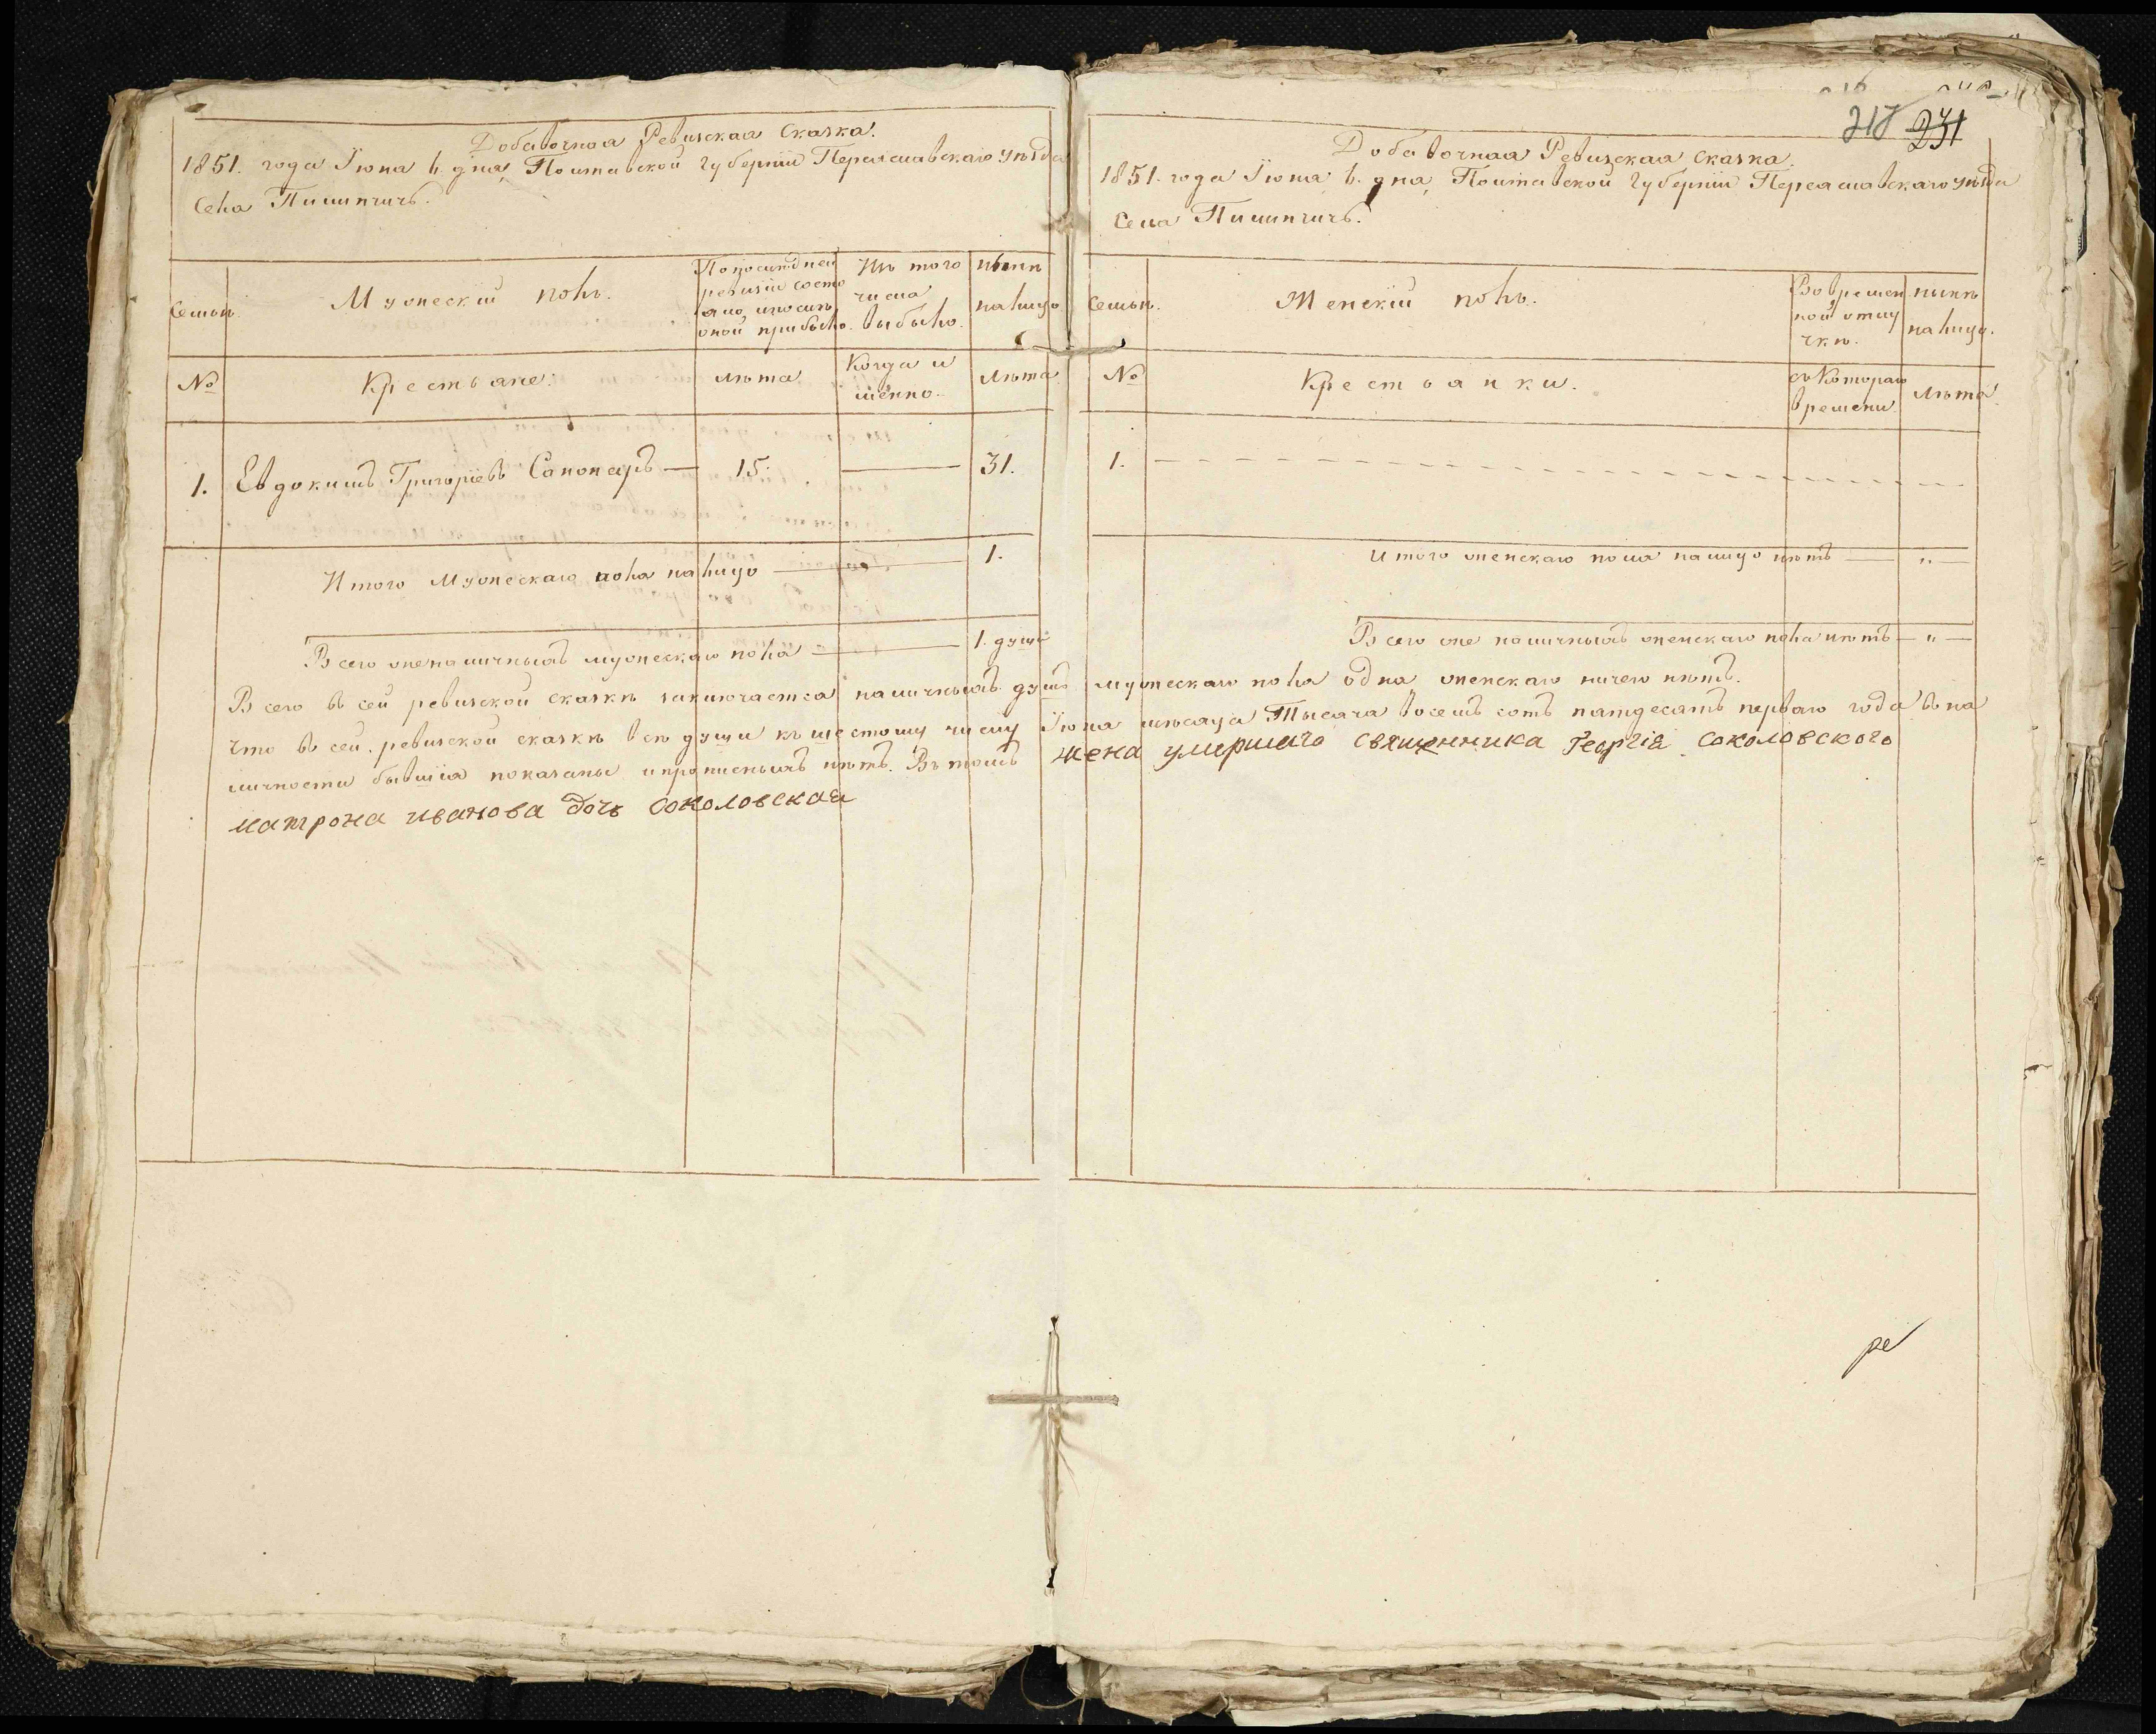 Добавочная Ревизская Сказка.
1851. года Iюна 6. дна, Полтавской Губернiи Переяславскаго уѣзда
Села Пилипчичъ.
Семьи.
Мужескiй полъ.
По последней
ревизiи состо
яло, и после
оной прибыло.
Изъ того
числа
выбыло.
Нынѣ
налицо
№
Крестьяне.
лѣта
Когда и
имѣнно.
Лѣта
1. Евдокимъ Григорiевъ Сапонаръ — 15. — 31.
Итого Мужескаго пола налицо — 1.
Всего же наличныхъ мужескаго пола — 1. душа
218 231
Добавочная Ревизская сказка.
1851. года Iюна 6. дна, Полтавской Губернiи Переяславскаго уѣзда
Села Пилипчичъ.
Семьи.
Женскiй полъ.
Во времен
ной отлу
чкѣ.
ныне
налицо.
№
Крестьанки.
съ Котораго
времени
лѣта
1.
Итого женскаго пола налицо нѣтъ — „ —
Всего же наличныхъ женскаго пола нѣтъ — „ —
Всего въ сей ревизской сказкѣ заключается наличныхъ душъ мужескаго пола одна женскаго ничего нѣтъ.
Что въ сей ревизской сказкѣ всѣ души къ шестому числу Iюна мѣсаца Тысача восемъ сотъ патдесатъ перваго года въ на
личности бывшiа показаны и прописныхъ нѣтъ. Въ томъ жена умершаго священника Георгiя Соколовского
матрона иванова дочь Соколовская
ре